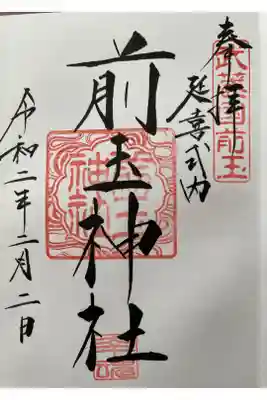 奉拝
武蔵国前玉
延喜式内
前玉神社
令和二年二月二日